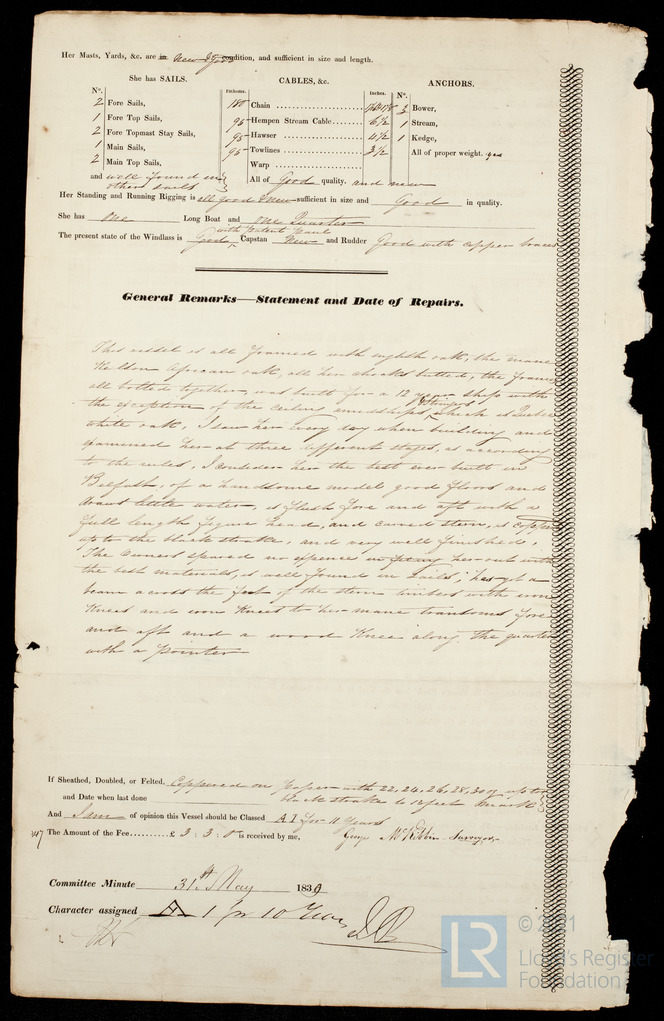 Her Masts, Yards, &c. are in New & good condition, and sufficient in size and length.
She has SAILS.
CABLES, &c.
ANCHORS.
N°.
Fathoms.
Inches.
N°.
2 Fore Sails,
180 Chain
Bower,
1 Fore Top Sails,
90 Hempen Stream Cable 6½
1 Stream,
2 Fore Topmast Stay Sails,
90 Hawser 4½
1 Kedge,
1 Main Sails,
90 Towlines 3½
All of proper weight. yes
2 Main Top Sails,
Warp
and well found in
other sails
All of Good quality. and new
Her Standing and Running Rigging is all good & new sufficient in size and Good in quality.
She has One Long Boat and One Quarter
with Patent Pauls
The present state of the Windlass is Good, Capstan New and Rudder Good with copper braces
General Remarks—Statement and Date of Repairs.
This vessel is all framed with english oak, the mane
Kelson African oak, all her chocks butted, the frames
all bolted together, was built for a 12 years ship with
the exception of the ceiling amidships & Stringers which is Quebec
white oak, I saw her every day when building and
examined her at three different stages, is according
to the rules, I consider her the best ever built in
Belfast, of a handsome model good floors and
draws little water, is flush fore and aft with a
full length figure head, and carved stern, is coppered
up to the black strake, and very well finished,
The owners spared no expence in fitting her out with
the best materials, is well found in sails, has got a
beam across the feet of the stern timbers with iron
Knees and iron Knees to her mane transoms fore
and aft and a wood Knee along the quarter
with a pointer
If Sheathed, Doubled, or Felted, Coppered on Paper with 22, 24, 26, 28, 30 oz up to
and Date when last done black strake to 12 feet mark
And I am of opinion this Vessel should be Classed A I for 11 Years
347 The Amount of the Fee £ 3 : 3 : 0 is received by me, George McKibbin Surveyor
Committee Minute 31st May 1839
Character assigned A 1 for 10 Years
© 2021
LR
Lloyd's Register
Foundation